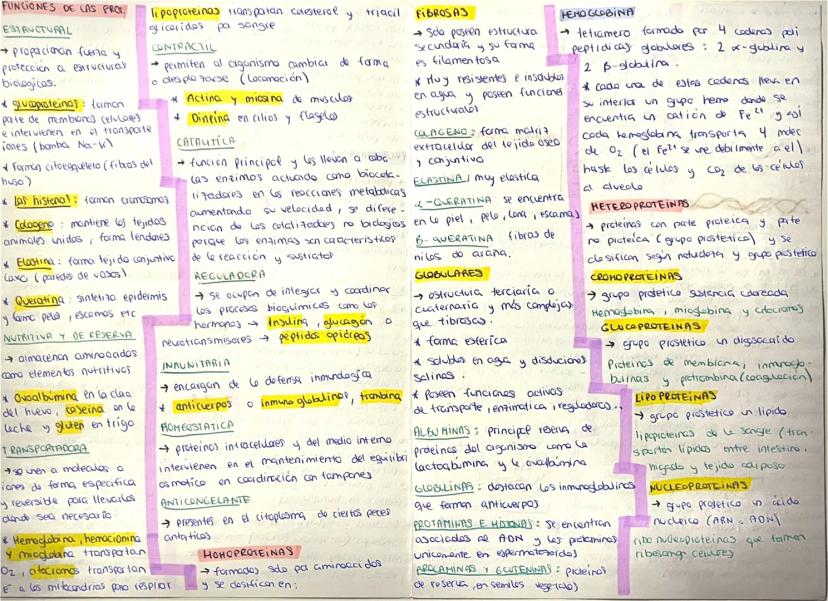 FUNCIONES DE LAS PROT.
ESTRUCTURAL
→ proporcionan fuerza y
protección a estructuras
biológicas.
* glucoproteinas: forman
parte de membranas celulares
e intervienen en el transporte
iones (bomba Na-K)
* Forman citoesqueleto (fibras del
huso)
* Las histonas: forman cromosomas
* Colageno: mantiene los tejidos
animales unidos, forma tendones
* Elastina: forma tejido conjuntivo
laxo (paredes de vasos)
* Queratina: sintetiza epidermis
y como pelo, escamas etc
NUTRITIVA Y DE RESERVA
→ almacenan aminoacidos
como elementos nutritivos
* Ovoalbúmina en la clara
del huevo, caseina en la
leche y gluten en trigo
TRANSPORTADORA
→ se unen a moleculas o
iones de forma especifica
y reversible para llevarlos
donde sea necesario.
* Hemoglobina, hemocianina
y mioglobina transportan
O2, citocromos transportan
E⁻ a las mitocondrias para respirar
lipoproteinas transportan colesterol y triacil
gliceridos por sangre
CONTRACTIL
→ permiten al organismo cambiar de forma
o desplazarse (locomoción)
* Actina y miosina de musculos
* Dineina en cilios y flagelos
CATALITICA
→ función principal y las llevan a cabo
las enzimas actuando como biocata-
lizadores en las reacciones metabolicas
aumentando su velocidad, se diferen-
cian de los catalizadores no biologicos
porque las enzimas son caracteristicas
de la reacción y sustrato
REGULADORA
→ se ocupan de integrar y coordinar
los procesos bioquimicos como las
hormonas → Insulina, glucagón o
neurotransmisores → peptidos opioides
INMUNITARIA
→ encargan de la defensa inmunologica
* anticuerpos o inmunoglobulinas, trombina
HOMEOSTATICA
→ proteinas intracelulares y del medio interno
intervienen en el mantenimiento del equilibri
osmotico en coordinación con tampones
ANTICONGELANTE
→ presentes en el citoplasma de ciertos peces
antarticos
HOMOPROTEINAS
→ formados solo por aminoacidos
y se clasifican en:
FIBROSAS
→ Solo poseen estructura
secundaria y su forma
es filamentosa
* Muy resistentes e insolubles
en agua y poseen funciones
estructurales
COLAGENO: forma matriz
extracelular del tejido oseo
y conjuntivo
ELASTINA, muy elastica
α-QUERATINA se encuentra
en la piel, pelo, lana, escamas
β-QUERATINA. fibras de
hilos de araña.
GLOBULARES
→ estructura terciaria o
cuaternaria y más complejas
que fibrosas.
* forma esferica
* solubles en agua y disoluciones
salinas.
* Poseen funciones activas
de transporte, enzimatica, reguladora...
ALBUMINAS: principal reserva de
proteinas del organismo como la
lactoalbúmina y la ovoalbúmina
GLOBULINAS: destacan las inmunoglobulinas
que forman anticuerpos
PROTAMINAS E HISTONAS: se encuentran
asociadas al ADN y las protaminas
unicamente en espermatozoides)
PROLAMINAS Y GLUTENINAS: proteinas
de reserva, en semillas vegetales)
HEMOGLOBINA
→ tetramero formado por 4 cadenas poli
peptidicas globulares: 2 α-globulina y
2 β-globulina.
* cada una de estas cadenas lleva en
su interior un grupo hemo donde se
encuentra un catión de Fe²⁺ y así
cada hemoglobina transporta 4 molec
de O2 (el Fe²⁺ se une debilmente a el)
hasta las células y CO2 de las células
al alveolo
HETEROPROTEINAS
→ proteinas con parte proteica y parte
no proteica (grupo prostetico) y se
clasifican según grupo prostetico
CROMOPROTEINAS
→ grupo protetico sustancia coloreada
Hemoglobina, mioglobina y citocromos
GLUCOPROTEINAS
→ grupo prostetico un disacaido
Proteinas de membrana, inmunoglo-
bulinas y protrombina (coagulación)
LIPOPROTEINAS
→ grupo prostetico un lipido
lipoproteinas de la sangre (tran-
sportan lipidos entre intestino,
higado y tejido adiposo
NUCLEOPROTEINAS
→ grupo prostetico un ácido
nucleico (ARN o ADN)
ribo nucleoproteinas que forman
ribosomas celulares